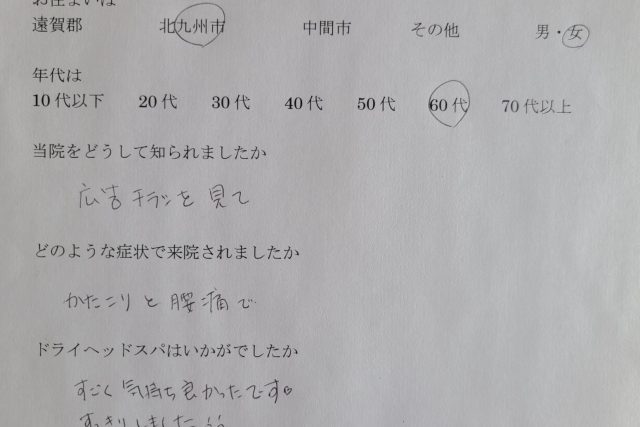 お住まいは
遠賀郡 北九州市 中間市 その他 男・女
年代は
10代以下 20代 30代 40代 50代 60代 70代以上
当院をどうして知られましたか
広告チラシを見て
どのような症状で来院されましたか
かたこりと腰痛で
ドライヘッドスパはいかがでしたか
すごく気持ち良かったです。
すっきりしました